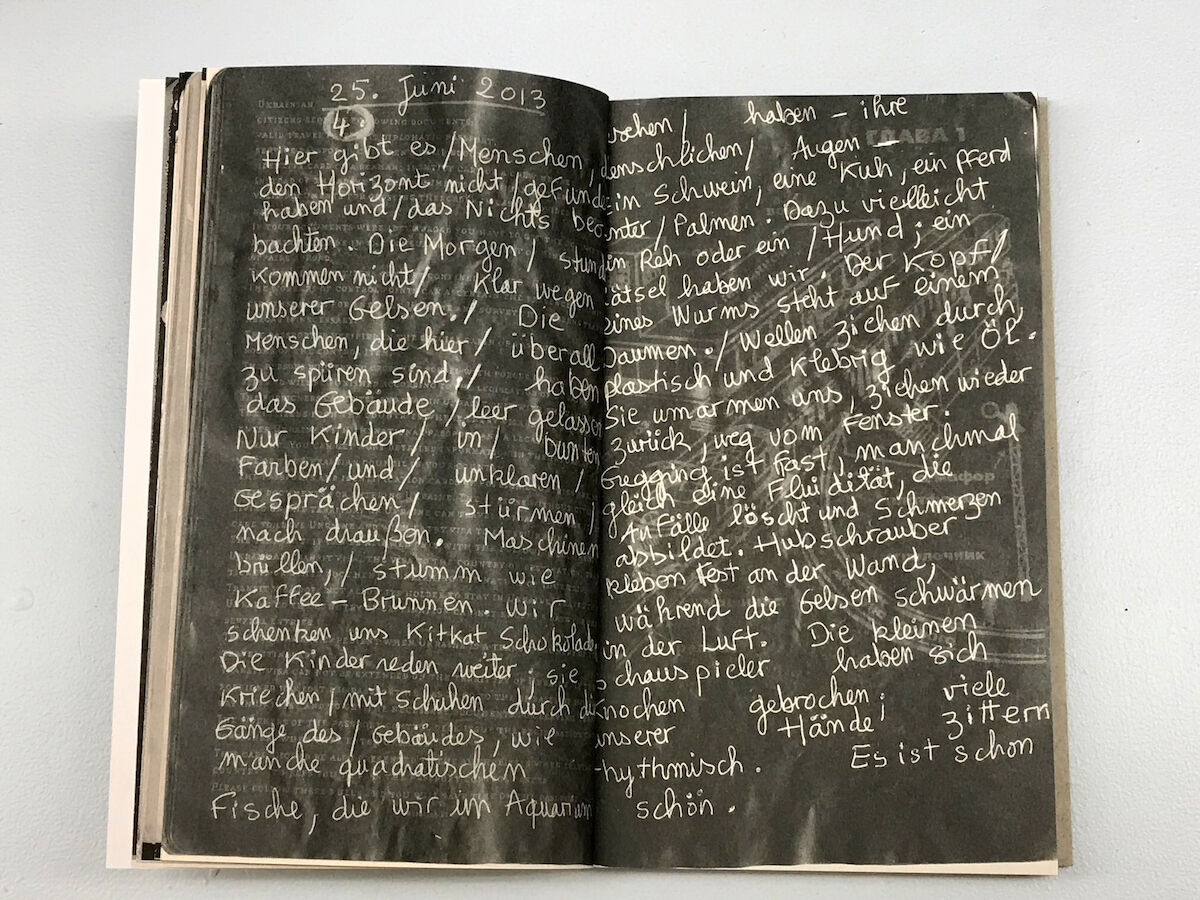 25. Juni 2013
4
Hier gibt es / Menschen,
den Horizont nicht / gefunde
haben und / das Nichts beo
bachten. Die Morgen / stund
kommen nicht / klar wegen
unserer Gelsen. / Die
Menschen, die hier / überall
zu spüren sind, / haben
das Gebäude / leer gelassen
Nur Kinder / in / bunten
Farben / und / unklaren /
Gesprächen / stürmen /
nach draußen. Maschinen
brüllen, / stumm wie
Kaffee-Brunnen. Wir
schenken uns Kitkat Schokolade.
Die Kinder reden weiter; sie
kriechen / mit Schuhen durch di
Gänge des / Gebäudes, wie
manche quadratischen
Fische, die wir im Aquarium
schen / haben - ihre
enschlichen / Augen -
ein Schwein, eine Kuh, ein Pferd
nter / Palmen. Dazu vielleicht
in Reh oder ein / Hund; ein
ätsel haben wir. Der Kopf /
eines Wurms steht auf einem
Daumen. / Wellen ziehen durch,
plastisch und klebrig wie Öl.
Sie umarmen uns, ziehen wieder
zurück, weg vom Fenster.
Gugging ist fast, manchmal
gleich eine Fluidität, die
Anfälle löscht und Schmerzen
abbildet. Hubschrauber
kleben fest an der Wand,
während die Gelsen schwärmen
in der Luft. Die kleinen
chauspieler haben sich
Knochen gebrochen; viele
unserer Hände zittern
rhythmisch. Es ist schon
schön.
ГЛАВА 1